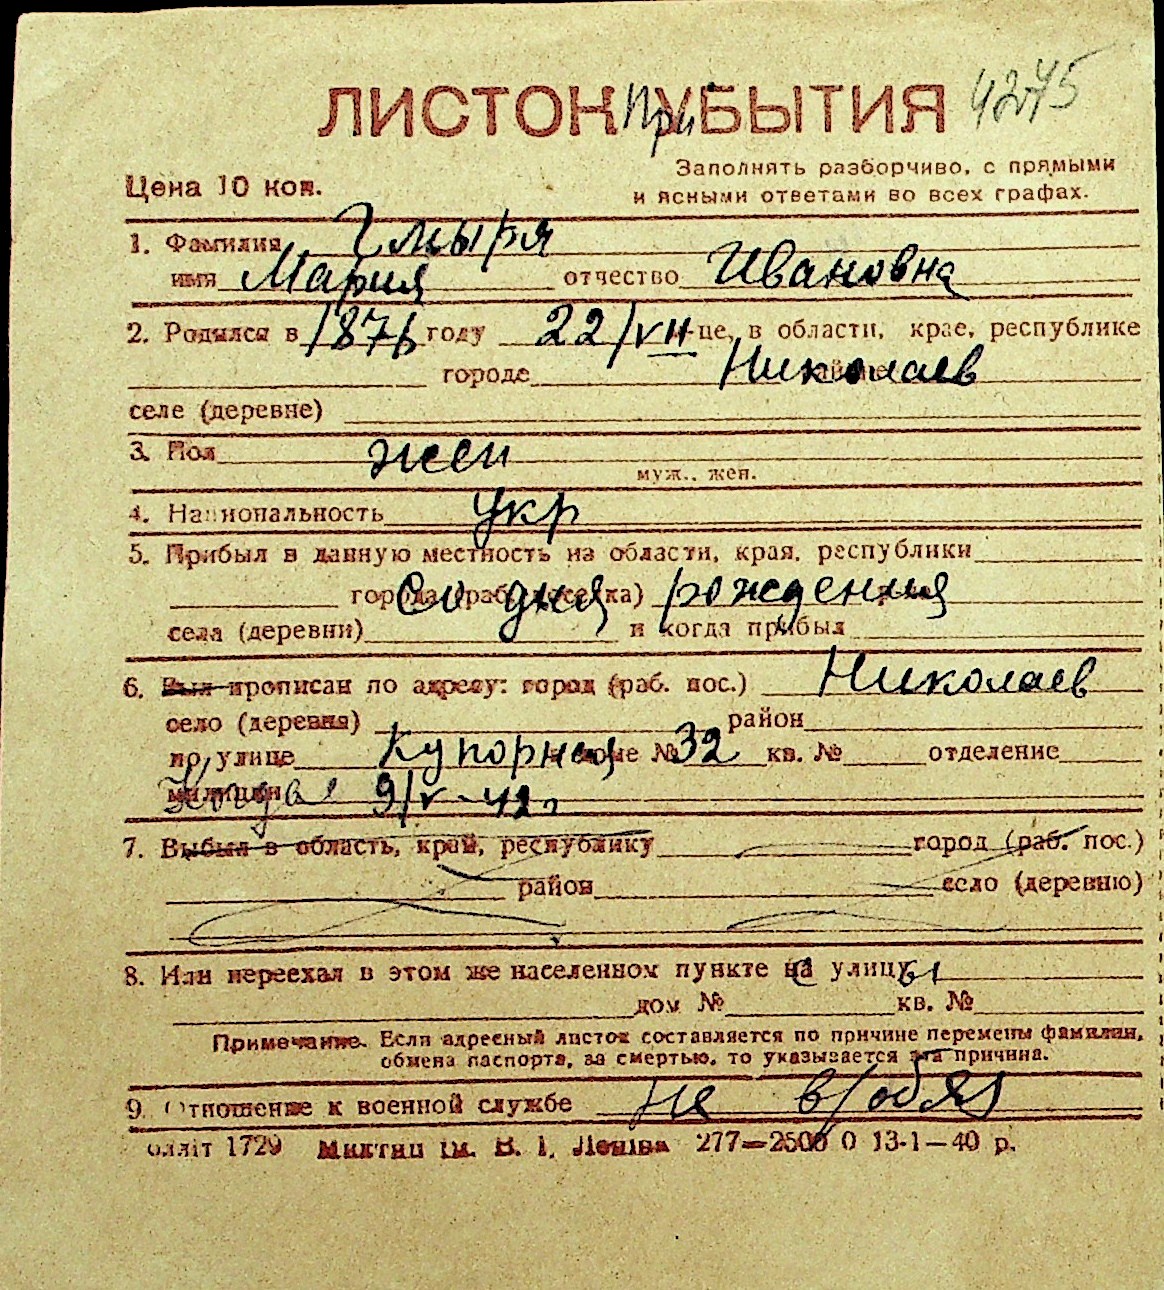 ЛИСТОК При УБЫТИЯ 4275
Цена 10 коп.
Заполнять разборчиво, с прямыми
и ясными ответами во всех графах.
1. Фамилия Гмыря
имя Мария отчество Ивановна
2. Родился в 1876 году 22/VII м-це, в области, крае, республике
городе Николаев
селе (деревне)
3. Пол жен
муж., жен.
4. Национальность укр
5. Прибыл в данную местность из области, края, республики
города (раб. поселка) со дня рождения
села (деревни) и когда прибыл
6. Был прописан по адресу: город (раб. пос.) Николаев
село (деревня) район
по улице Купорная в доме № 32 кв. № отделение
милиции Когда 9/V-42 г
7. Выбыл в область, край, республику город (раб. пос.)
район село (деревню)
8. Или переехал в этом же населенном пункте на улицу
дом № кв. №
Примечание. Если адресный листок составляется по причине перемены фамилии,
обмена паспорта, за смертью, то указывается эта причина.
9. Отношение к военной службе не в/обяз
облліт 1729 Миктип ім. В. І. Леніна 277—2500 0 13-1—40 р.